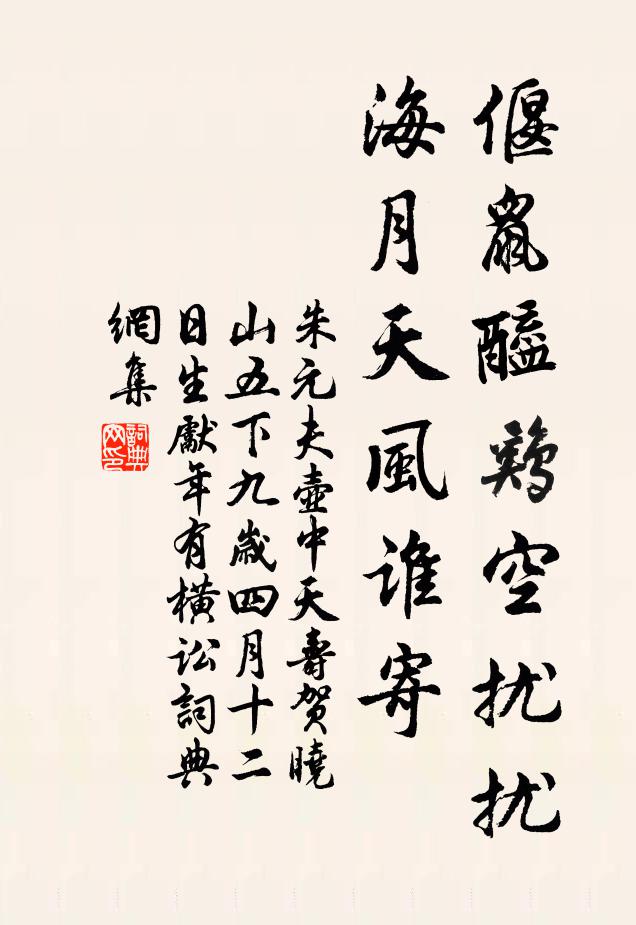 偃鼠醯鷄空扰扰
海月天風谁寄
朱元夫壺中天壽賀曉
山五下九歲四月十二
日生獻年有橫讼詞典
網集
詞典
网印